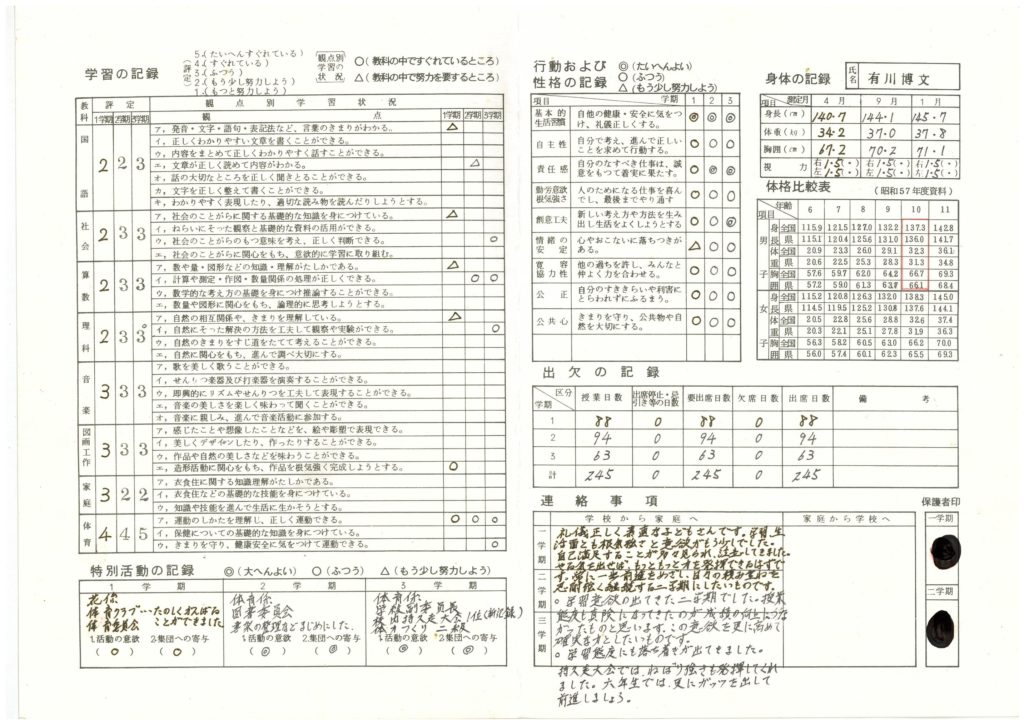 学習の記録
(評定)
5.(たいへんすぐれている)
4.(すぐれている)
3.(ふつう)
2.(もう少し努力しよう)
1.(もっと努力しよう)
観点別学習の状況
○(教科の中ですぐれているところ)
△(教科の中で努力を要するところ)
教科 評定 観点別学習状況
1学期 2学期 3学期 観点 1学期 2学期 3学期
国語 2 2 3
ア，発音・文字・語句・表記法など、言葉のきまりがわかる。 △
イ，正しくわかりやすい文章を書くことができる。
ウ，内容をまとめて正しくわかりやすく話すことができる。
エ，文章が正しく読めて内容がわかる。 △
オ，話の大切なところを正しく聞きとることができる。
カ，文字を正しく整えて書くことができる。
キ，わかりやすく表現したり、適切な読み物を読んだりしようとする。
社会 2 3 3
ア，社会のことがらに関する基礎的な知識を身につけている。 △
イ，ねらいにそった観察と基礎的な資料の活用ができる。
ウ，社会のことがらのもつ意味を考え、正しく判断できる。 ○
エ，社会のことがらに関心をもち、意欲的に学習に取り組む。
算数 2 3 3
ア，数や量・図形などの知識・理解がたしかである。 △
イ，計算や測定・作図・数量関係の処理が正しくできる。 ○ ○
ウ，数学的な考え方の基礎を身につけ推論することができる。
エ，数量や図形に関心をもち、論理的に思考しようとする。
理科 2 3 3
ア，自然の相互関係や、きまりを理解している。 △
イ，自然にそった解決の方法を工夫して観察や実験ができる。 ○
ウ，自然のきまりをすじ道をたてて考えることができる。
エ，自然に関心をもち、進んで調べ大切にする。
音楽 3 3 3
ア，歌を美しく歌うことができる。
イ，せんりつ楽器及び打楽器を演奏することができる。
ウ，即興的にリズムやせんりつを工夫して表現することができる。
エ，音楽の美しさを楽しく味わって聞くことができる。
オ，音楽に親しみ、進んで音楽活動に参加する。
図画工作 3 3 3
ア，感じたことや想像したことなどを、絵や彫塑で表現できる。
イ，美しくデザインしたり、作ったりすることができる。
ウ，作品や自然の美しさなどを味わうことができる。
エ，造形活動に関心をもち、作品を根気強く完成しようとする。 ○
家庭 3 2 2
ア，衣食住に関する知識理解がたしかである。
イ，衣食住などの基礎的な技能を身につけている。
ウ，知識や技能を進んで生活に生かそうとする。
体育 4 4 5
ア，運動のしかたを理解し、正しく運動できる。 ○ ○ ○
イ，保健についての基礎的な知識を身につけている。
ウ，きまりを守り、健康安全に気をつけて運動できる。 ○
特別活動の記録 ◎(大へんよい) ○(ふつう) △(もう少し努力しよう)
1学期 2学期 3学期
花係
体育クラブ…たのしくすればる
体育委員会 ことができました
体育係
図書委員会
書架の整理などまじめにした。
体育係
学級副委員長
校内持久走大会 1位(新記録)
体力つくり 二級
1.活動の意欲 2.集団への寄与
(○) (○)
1.活動の意欲 2.集団への寄与
(◎) (◎)
1.活動の意欲 2.集団への寄与
(◎) (◎)
行動および性格の記録
◎(たいへんよい)
○(ふつう)
△(もう少し努力しよう)
項目 学期 1 2 3
基本的生活習慣 自他の健康・安全に気をつけ、礼儀正しくする。 ◎ ◎ ◎
自主性 自分で考え、進んで正しいことを求めて行動する。 ○ ○ ○
責任感 自分のなすべき仕事は、誠意をもつて着実に果たす。 ○ ◎ ◎
勤労意欲根気強さ 人のためになる仕事を喜んでし、最後までやり通す ○ ○ ○
創意工夫 新しい考え方や方法を生み出し生活をよくしようとする ○ ○ ◎
情緒の安定 心やおこないに落ちつきがある。 △ ○ ○
寛容協力性 他の過ちを許し、みんなと仲よく力を合わせる。 ○ ○ ○
公正 自分のすききらいや利害にとらわれずにふるまう。 ○ ○ ○
公共心 きまりを守り、公共物や自然を大切にする。 ○ ○ ○
身体の記録 氏名 有川博文
項目 測定月 4月 9月 1月
身長(cm) 140.7 144.1 145.7
体重(kg) 34.2 37.0 37.8
胸囲(cm) 67.2 70.2 71.1
視力 右1.5(・) 右1.5(・) 右1.5(・)
左1.5(・) 左1.5(・) 左1.5(・)
体格比較表 (昭和57年度資料)
項目 年齢 6 7 8 9 10 11
男子 身長 全国 115.9 121.5 127.0 132.2 137.3 142.8
県 115.1 120.4 125.6 131.0 136.0 141.7
体重 全国 20.9 23.3 26.0 29.2 32.3 36.1
県 20.6 22.5 25.3 28.3 31.3 34.8
胸囲 全国 57.6 59.7 62.0 64.2 66.7 69.3
県 57.2 59.0 61.3 63.7 66.1 68.4
女子 身長 全国 115.2 120.8 126.3 132.0 138.3 145.0
県 114.5 119.5 125.2 130.8 137.6 144.1
体重 全国 20.5 22.8 25.6 28.8 32.6 37.4
県 20.3 22.1 25.1 27.8 31.9 36.3
胸囲 全国 56.3 58.2 60.5 63.0 66.2 70.0
県 56.0 57.4 60.1 62.3 65.5 69.3
出欠の記録
学期 区分 授業日数 出席停止・忌引き等の日数 要出席日数 欠席日数 出席日数 備考
1 88 0 88 0 88
2 94 0 94 0 94
3 63 0 63 0 63
計 245 0 245 0 245
連絡事項
保護者印
学校から家庭へ 家庭から学校へ
一学期
二学期
三学期
一学期
二学期
礼儀正しく素直な子どもさんです。学習、生
活面とも根気強さと意欲がもう少しでした。
自己満足することが多々見られ、注意してきました
やる気を出せば、もっともっと力を発揮できるはずで
す。常に一歩前進をめざし、日々の積み重ねを
忍耐強く継続する二学期にしたいものです。
○学習意欲の出てきた二学期でした。授業
態度も真険になってきたのが成績の向上につな
がったものと思います。この意欲を更に高めて
確実な力としたいものです。
○学習態度にも落ち着きが出てきました。
持久走大会では、ねばり強さも発揮してくれ
ました。六年生では、更にガッツを出して
前進しましょう。